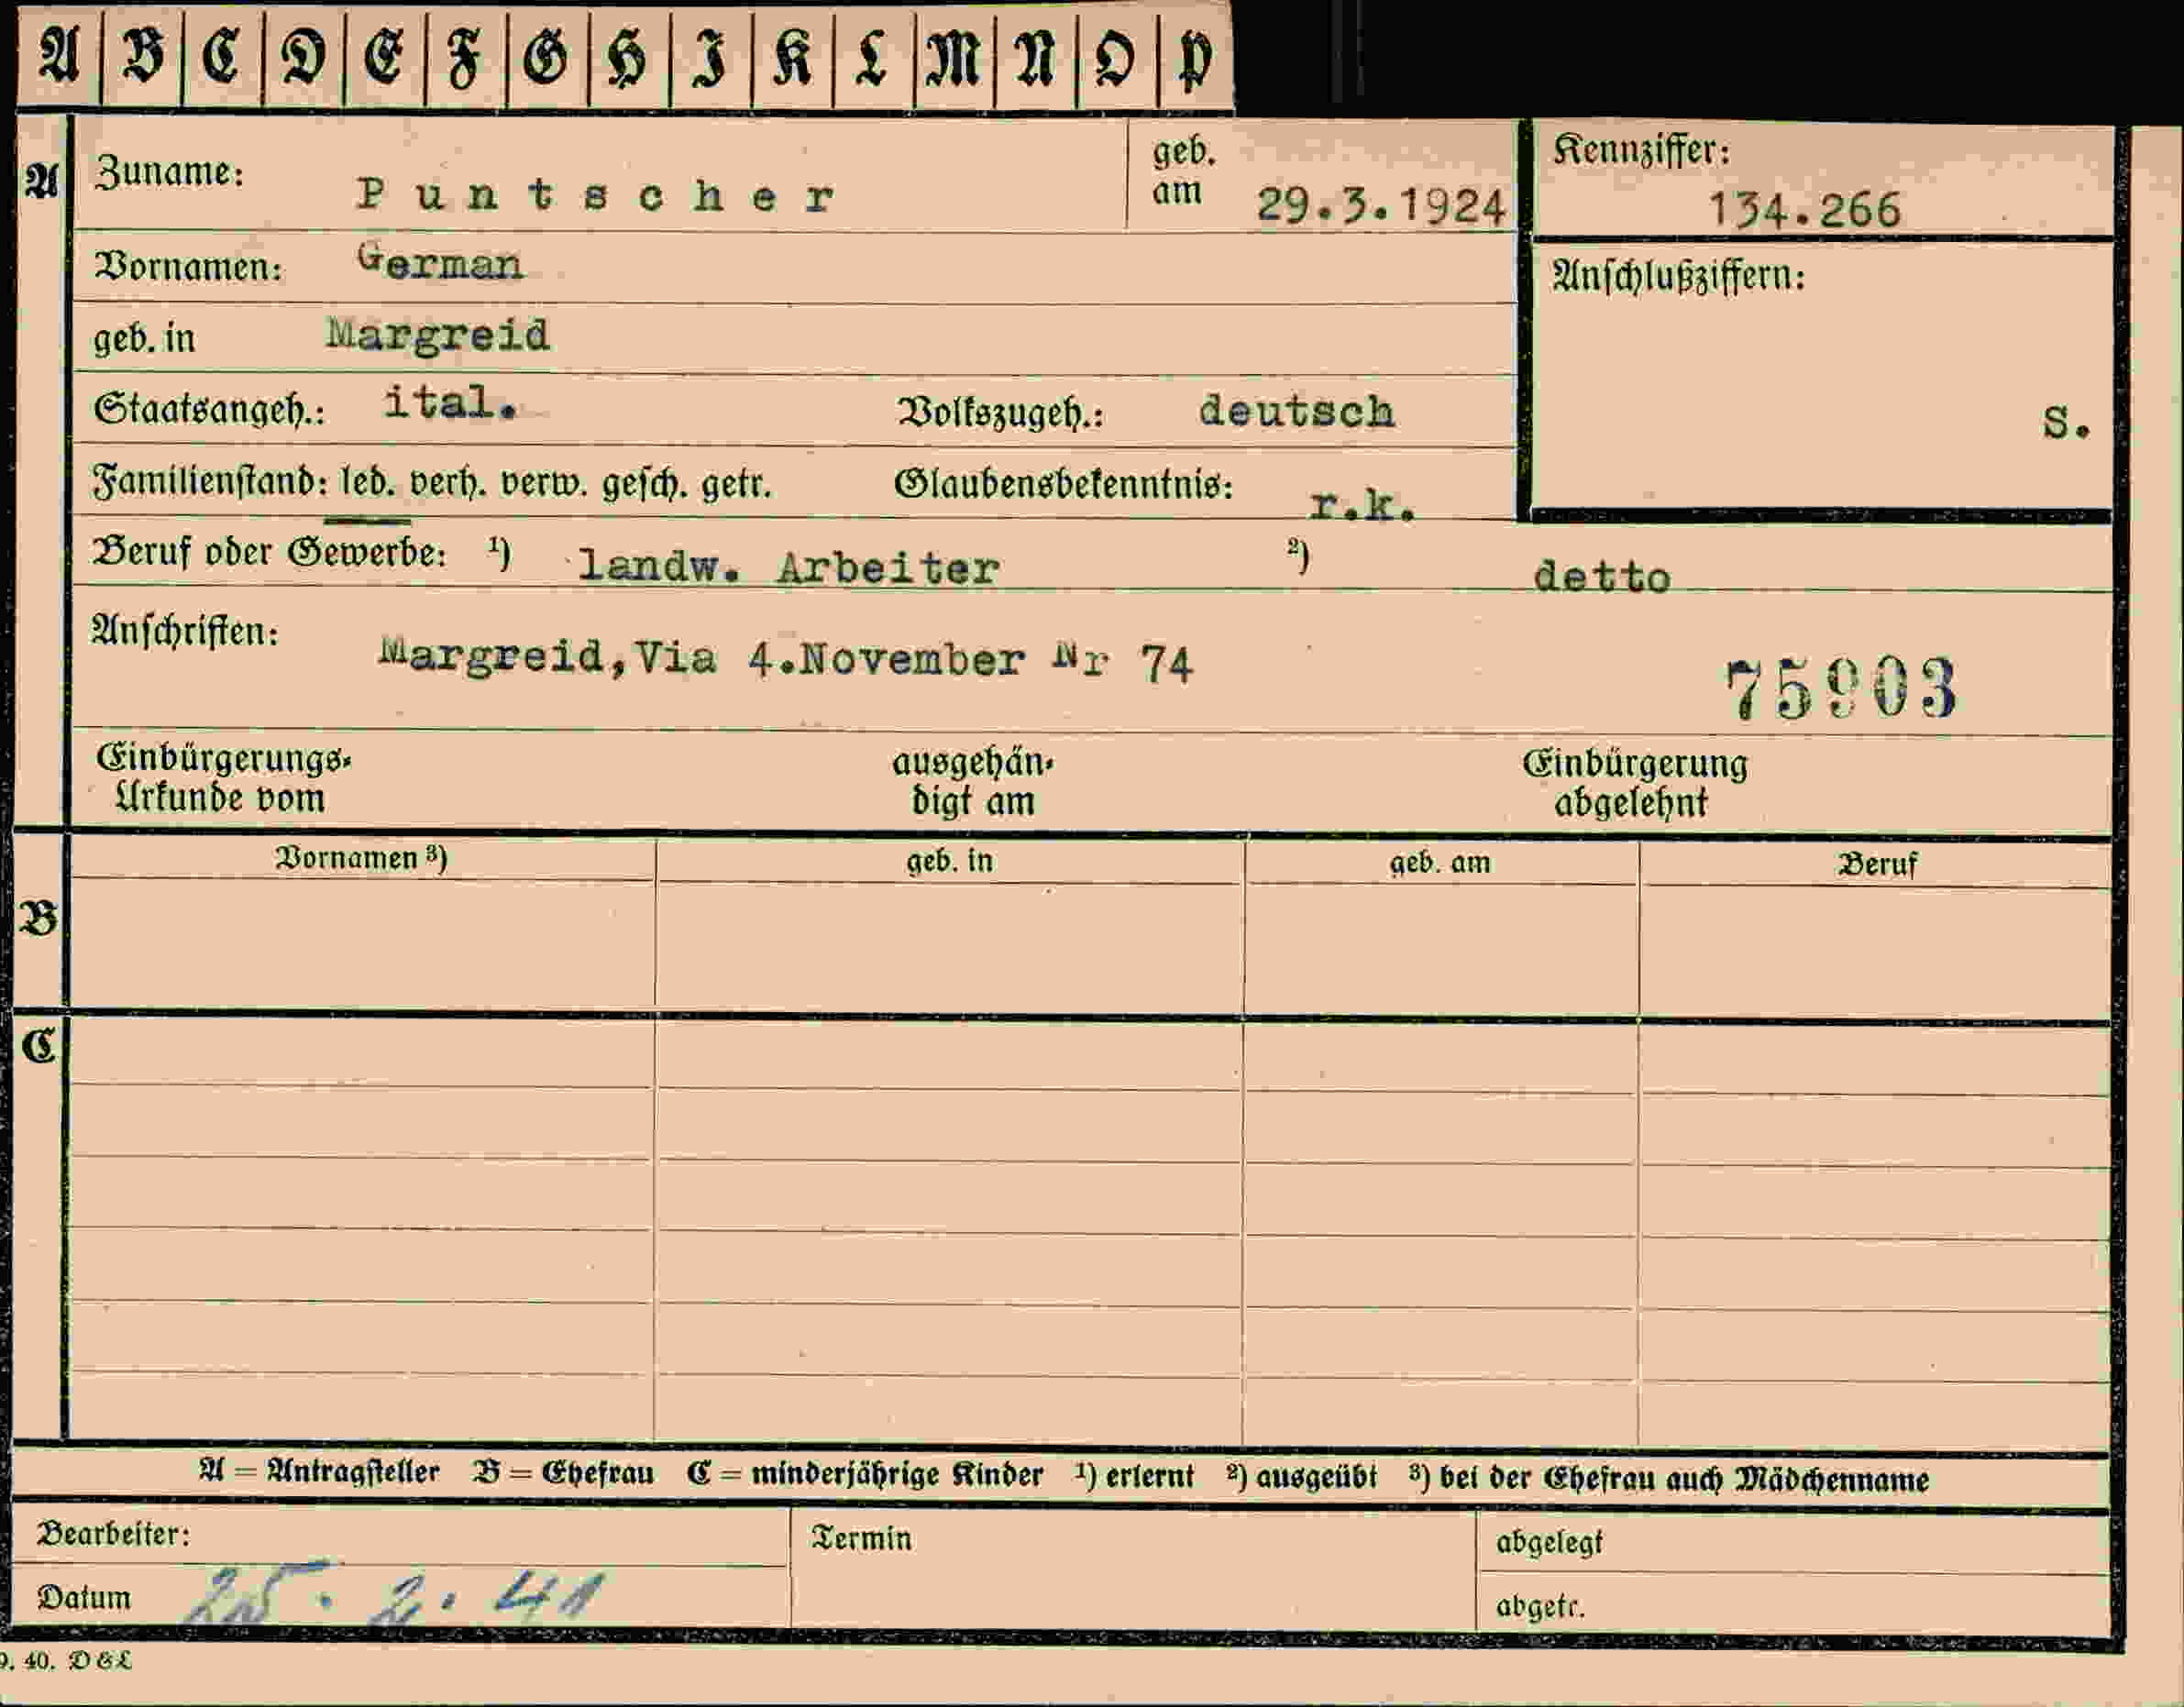 A B C D E F G H I K L M N O P
A Zuname: Puntscher geb. am 29.3.1924 Kennziffer: 134.266
Vornamen: German Anschlußziffern:
geb. in Margreid
Staatsangeh.: ital. Volkszugeh.: deutsch S.
Familienstand: led. verh. verw. gesch. getr. Glaubensbekenntnis: r.k.
Beruf oder Gewerbe: 1) landw. Arbeiter 2) detto
Anschriften: Margreid,Via 4.November Nr 74 75903
Einbürgerungs- ausgehän- Einbürgerung
Urkunde vom digt am abgelehnt
Vornamen 3) geb. in geb. am Beruf
B
C
A = Antragsteller B = Ehefrau C = minderjährige Kinder 1) erlernt 2) ausgeübt 3) bei der Ehefrau auch Mädchenname
Bearbeiter: Termin abgelegt
Datum 25. 2. 41 abgetr.
9. 40. D & L